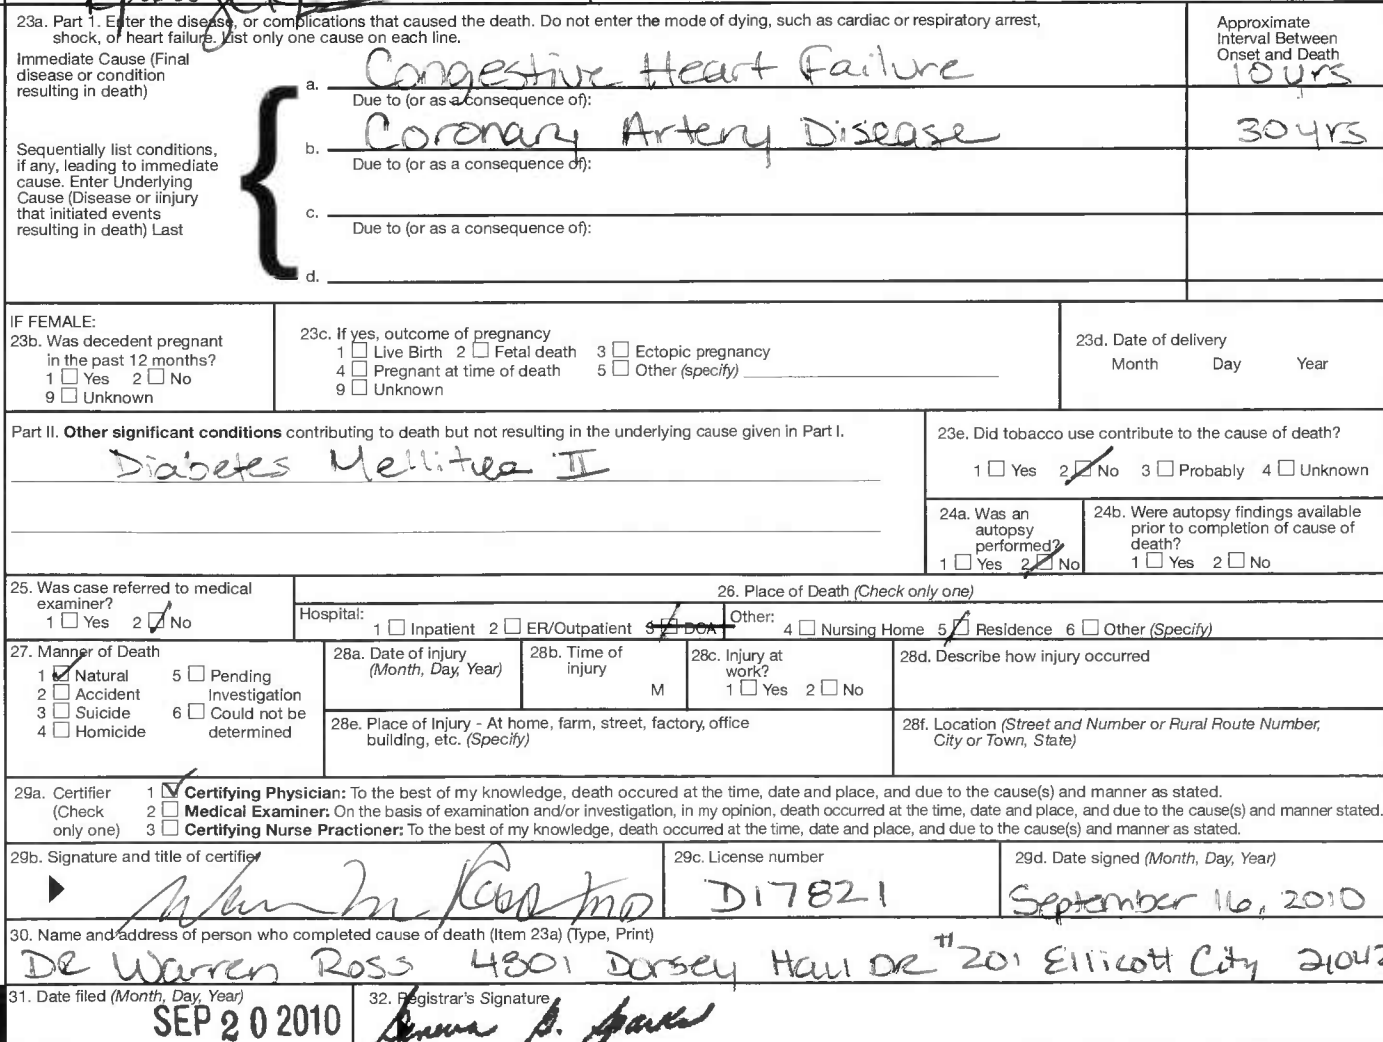 23a. Part 1. Enter the disease, or complications that caused the death. Do not enter the mode of dying, such as cardiac or respiratory arrest,
shock, of heart failure. List only one cause on each line.
Approximate
Interval Between
Onset and Death
Immediate Cause (Final
disease or condition
resulting in death)
a. Congestive Heart Failure 10 yrs
Due to (or as a consequence of):
b. Coronary Artery Disease 30 yrs
Due to (or as a consequence of):
Sequentially list conditions,
if any, leading to immediate
cause. Enter Underlying
Cause (Disease or iinjury
that initiated events
resulting in death) Last
c.
Due to (or as a consequence of):
d.
IF FEMALE:
23b. Was decedent pregnant
in the past 12 months?
1 ☐ Yes 2 ☐ No
9 ☐ Unknown
23c. If yes, outcome of pregnancy
1 ☐ Live Birth 2 ☐ Fetal death 3 ☐ Ectopic pregnancy
4 ☐ Pregnant at time of death 5 ☐ Other (specify)
9 ☐ Unknown
23d. Date of delivery
Month Day Year
Part II. Other significant conditions contributing to death but not resulting in the underlying cause given in Part I.
Diabetes Mellitus II
23e. Did tobacco use contribute to the cause of death?
1 ☐ Yes 2 ☑ No 3 ☐ Probably 4 ☐ Unknown
24a. Was an
autopsy
performed?
1 ☐ Yes 2 ☑ No
24b. Were autopsy findings available
prior to completion of cause of
death?
1 ☐ Yes 2 ☐ No
25. Was case referred to medical
examiner?
1 ☐ Yes 2 ☑ No
26. Place of Death (Check only one)
Hospital: 1 ☐ Inpatient 2 ☐ ER/Outpatient 3 ☑ DOA Other: 4 ☐ Nursing Home 5 ☑ Residence 6 ☐ Other (Specify)
27. Manner of Death
1 ☑ Natural 5 ☐ Pending
2 ☐ Accident Investigation
3 ☐ Suicide 6 ☐ Could not be
4 ☐ Homicide determined
28a. Date of injury
(Month, Day, Year)
28b. Time of
injury
M
28c. Injury at
work?
1 ☐ Yes 2 ☐ No
28d. Describe how injury occurred
28e. Place of Injury - At home, farm, street, factory, office
building, etc. (Specify)
28f. Location (Street and Number or Rural Route Number,
City or Town, State)
29a. Certifier
(Check
only one)
1 ☑ Certifying Physician: To the best of my knowledge, death occured at the time, date and place, and due to the cause(s) and manner as stated.
2 ☐ Medical Examiner: On the basis of examination and/or investigation, in my opinion, death occurred at the time, date and place, and due to the cause(s) and manner stated.
3 ☐ Certifying Nurse Practioner: To the best of my knowledge, death occurred at the time, date and place, and due to the cause(s) and manner as stated.
29b. Signature and title of certifier
MD
29c. License number
D17821
29d. Date signed (Month, Day, Year)
September 16, 2010
30. Name and address of person who completed cause of death (Item 23a) (Type, Print)
DR Warren Ross 4801 Dorsey Hall DR #201 Ellicott City 21042
31. Date filed (Month, Day, Year)
SEP 20 2010
32. Registrar's Signature